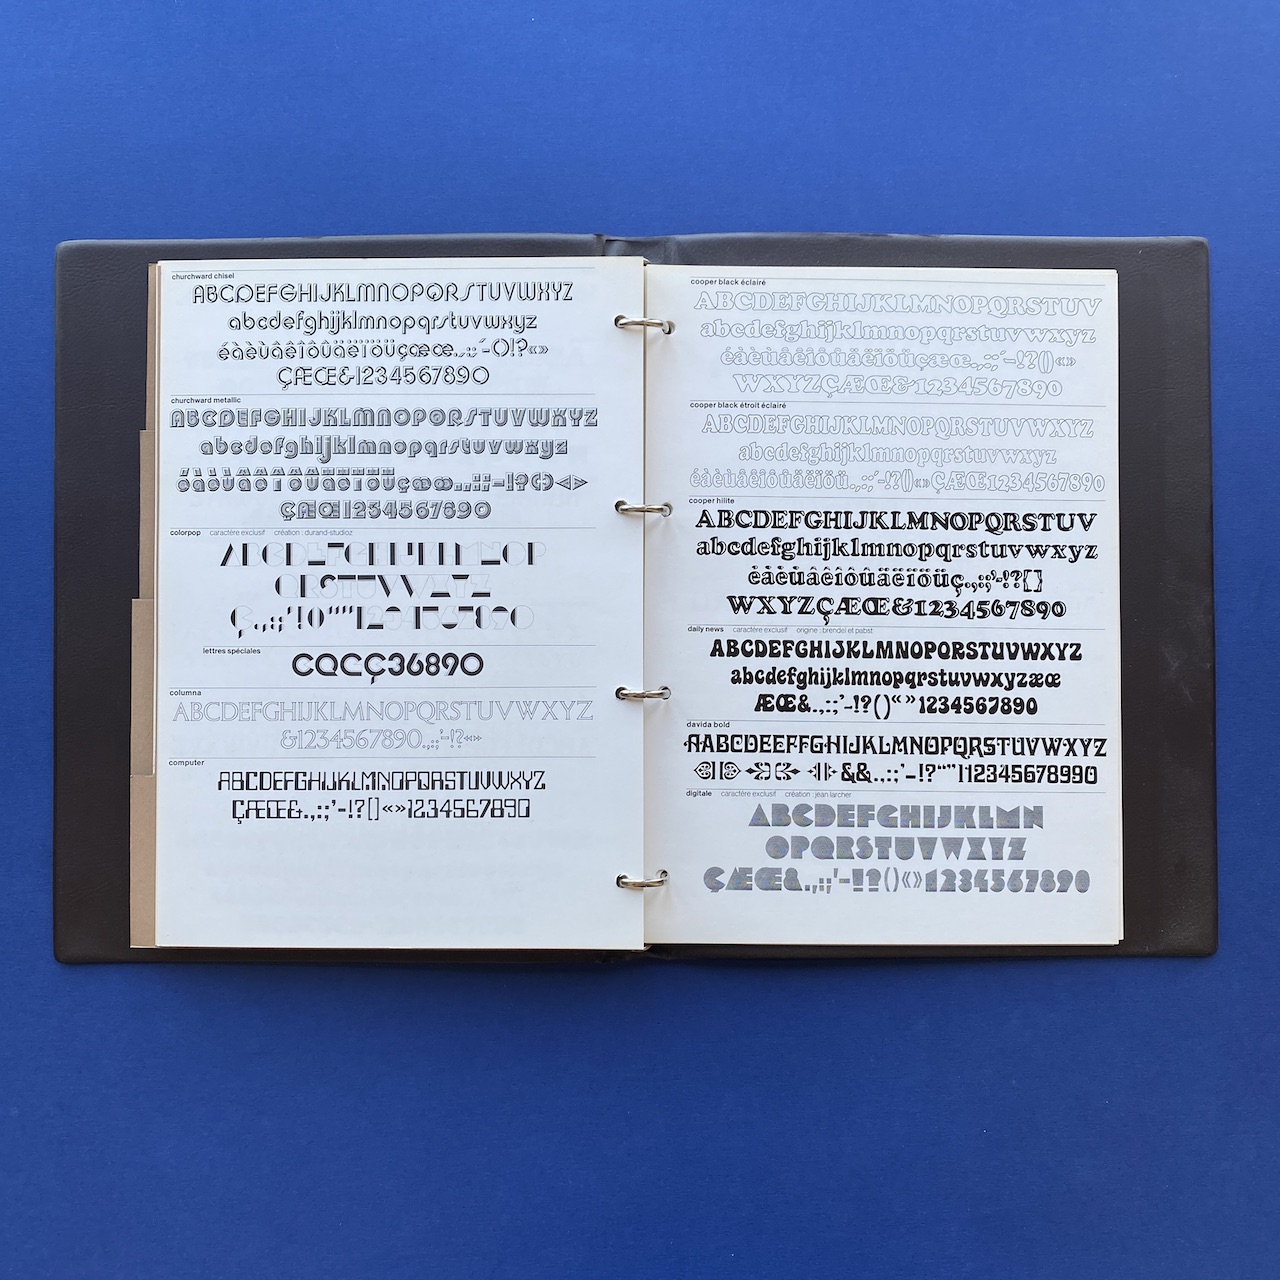 churchward chisel
ABCDEFGHIJKLMNOPQRSTUVWXYZ
abcdefghijklmnopqrstuvwxyz
éàèùâêîôûäëïöüçæœ.,:;´-()!?«»
ÇÆŒ&1234567890
churchward metallic
ABCDEFGHIJKLMNOPQRSTUVWXYZ
abcdefghijklmnopqrstuvwxyz
éàèùâêîôûäëïöüçæœ.,:;-!?()«»
ÇÆŒ1234567890
colorpop caractère exclusif création : durand-studioz
ABCDEFGHIJKLMNOP
QRSTUVWXYZ
Ç.,:;'!()""1234567890
lettres spéciales
CQEÇ36890
columna
ABCDEFGHIJKLMNOPQRSTUVWXYZ
&1234567890.,:;'-!?«»
computer
ABCDEFGHIJKLMNOPQRSTUVWXYZ
ÇÆŒ&.,:;'-!?[]«»1234567890
cooper black éclairé
ABCDEFGHIJKLMNOPQRSTUV
abcdefghijklmnopqrstuvwxyz
éàèùâêîôûäëïöüçæœ.,:;´-!?()«»
WXYZÇÆŒ&1234567890
cooper black étroit éclairé
ABCDEFGHIJKLMNOPQRSTUVWXYZ
abcdefghijklmnopqrstuvwxyz
éàèùâêîôûäëïöü.,:;´-!?()«»ÇÆŒ1234567890
cooper hilite
ABCDEFGHIJKLMNOPQRSTUV
abcdefghijklmnopqrstuvwxyz
éàèùâêîôûäëïöüç.,:;'-!?[]
WXYZÇÆŒ&1234567890
daily news caractère exclusif origine : brendel et pabst
ABCDEFGHIJKLMNOPQRSTUVWXYZ
abcdefghijklmnopqrstuvwxyzæœ
ÆŒ&.,:;'-!?()«»1234567890
davida bold
AABCDEEFFGHIJKLMNOPQRSTUVWXYZ
&&.,:;'-!?“”112345678990
digitale caractère exclusif création : jean larcher
ABCDEFGHIJKLMN
OPQRSTUVWXYZ
ÇÆŒ&.,:;'-!?()«»1234567890